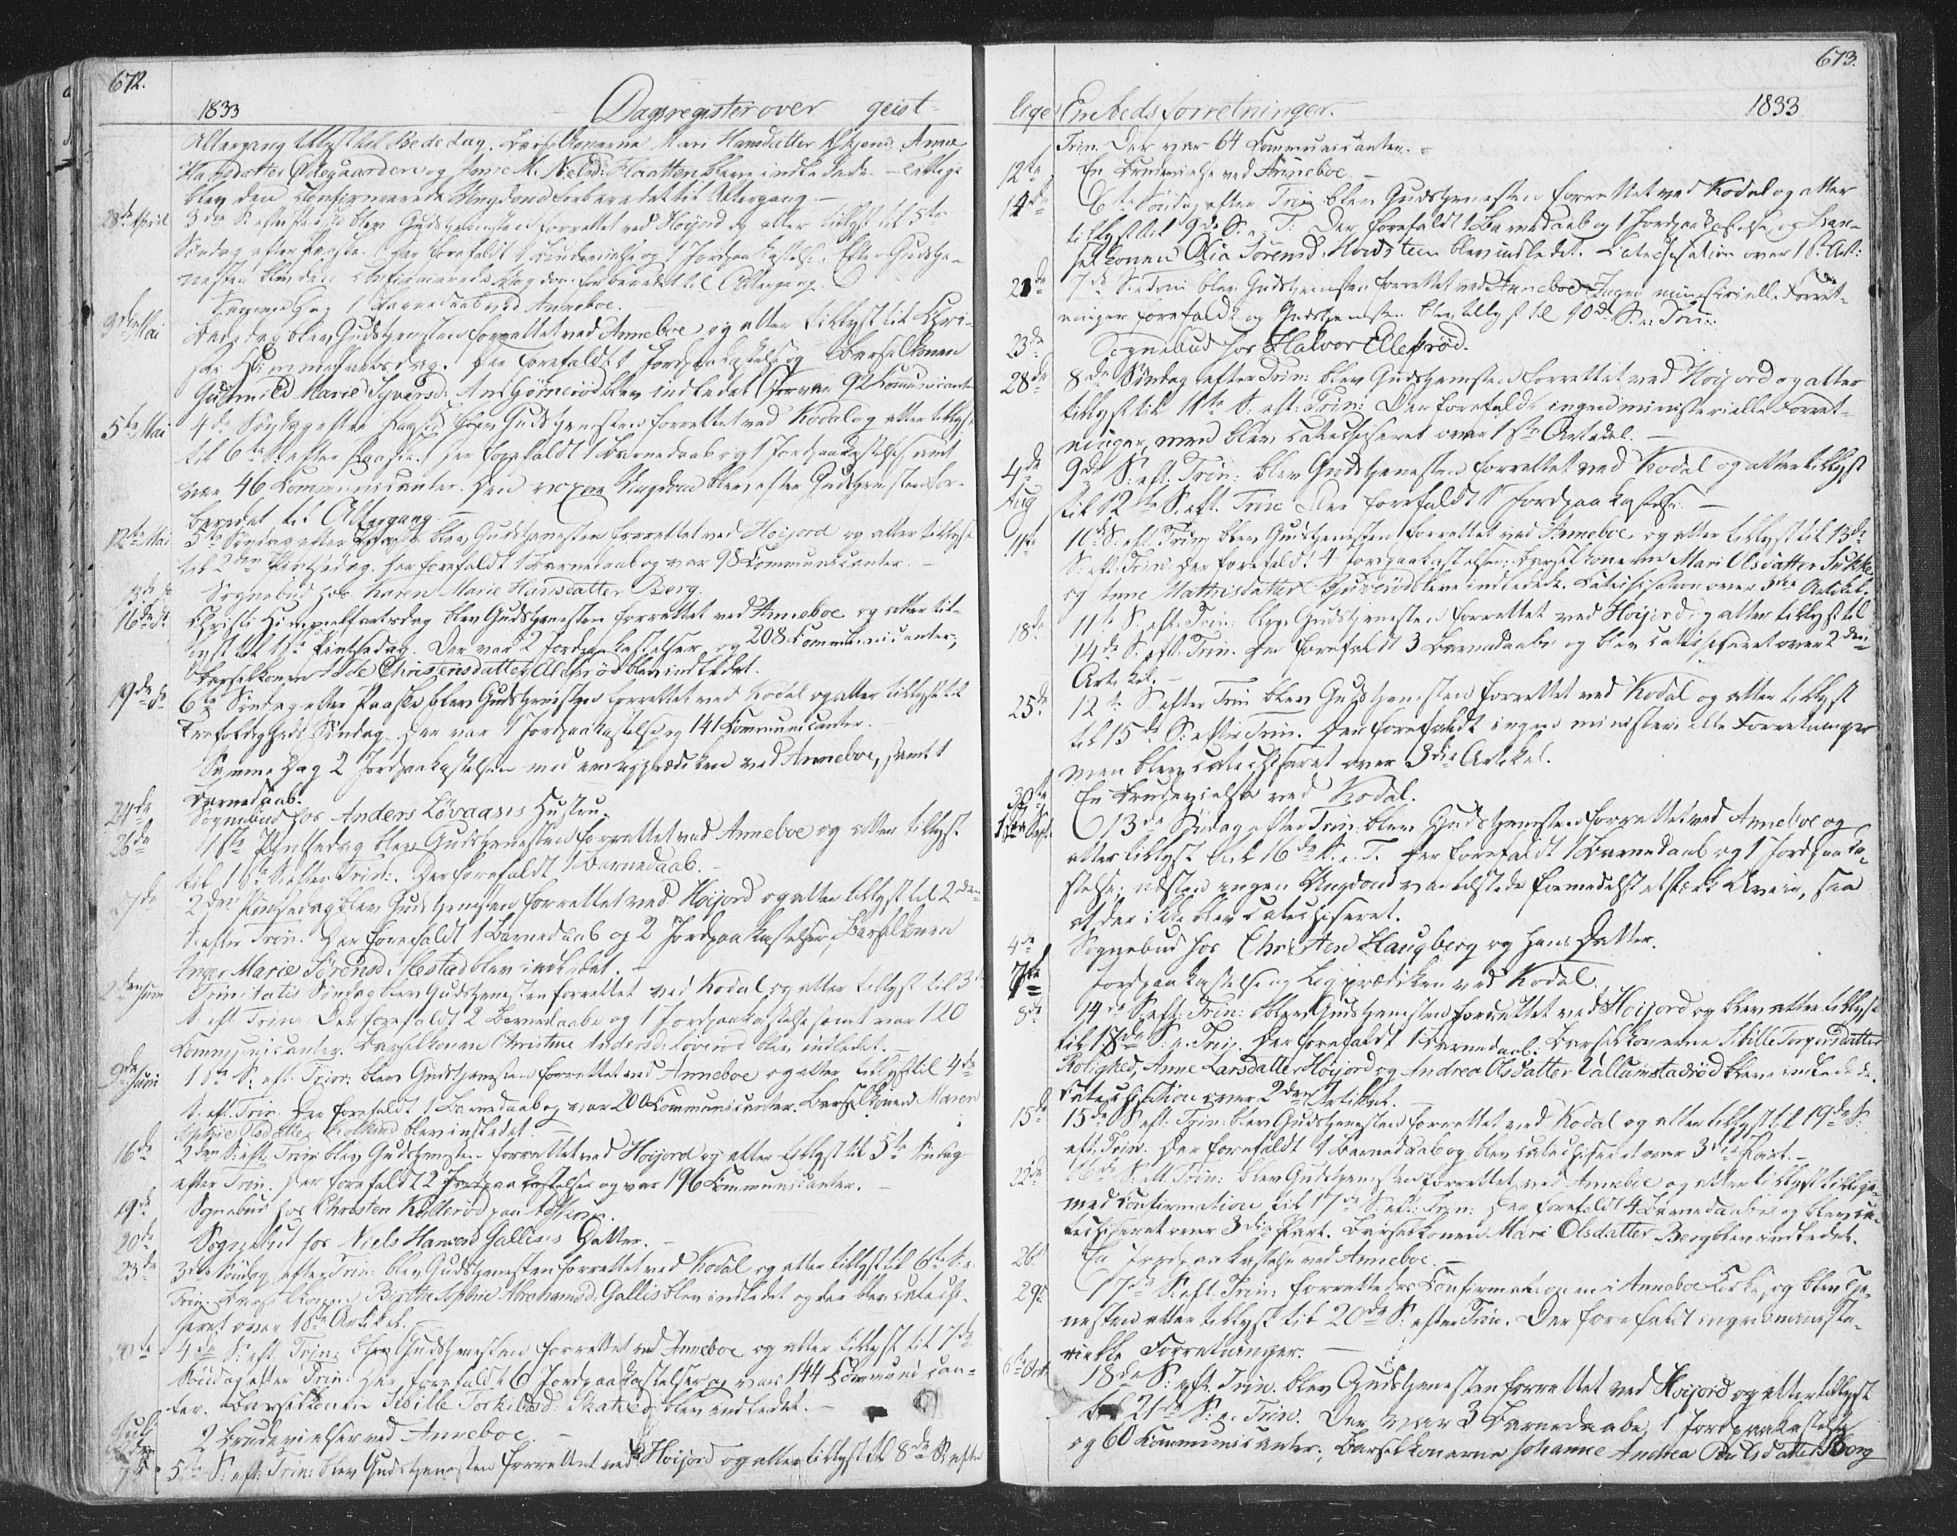 672.
1833 Dagsregister over geist-
Altergang tillyst til Bededag. Barselkonerne Mari Hansdatter Anne
Hansdatter Ødegaarden og Anne M. Nielsd: Haatten bleve indledede. –
blev den Confirmerede Ungdom forberedet til Altergang. –
28de April 3die S. efter Paaske blev Gudstjenesten forrettet ved Høijord og atter tillyst til 5te
Søndag efter Paaske. Der forefaldt 1 Brudevielse og 1 Jordpaakastelse. Efter Gudstje-
nesten blev den confirmerede Ungdom forberedet til Altergang.
Samme Dag 1 Barnedaab ved Anneboe.
Mai dag blev Gudstjenesten forrettet ved Anneboe og atter tillyst til Chri-
sti Himmelfartsdag. Der forefaldt 1 Jordpaakastelse og Barselkonen
Gunnild Marie Syversd: Gjørnerød blev indledet. Der var 92 Communicanter
5te Mai 4de Søndag efter Paaske blev Gudstjenesten forrettet ved Kodal og atter tillyst
til 6te S. efter Paaske. Der forefaldt 1 Barnedaab og 1 Jordpaakastelse samt
var 46 Communicanter. Den voxne Ungdom blev efter Gudstjenesten for-
beredet til Altergang. –
12te Mai 5te Søndag efter Paaske blev Gudstjenesten forrettet ved Høijord og atter tillyst
til 2den Pintsedag. Der forefaldt 1 Barnedaab og var 98 Communicanter. –
Sognebud hos Karen Marie Hansdatter Berg.
16de Christi Himmelfartsdag blev Gudstjenesten forrettet ved Anneboe og atter til-
lyst til 1ste Pintsedag. Der var 2 Jordpaakastelser og 208 Communicanter,
Barselkonen Christensdatter blev indledet.
19de 6te Søndag efter Paaske blev Gudstjenesten forrettet ved Kodal og atter tillyst til
Trefoldigheds Søndag. Der var 1 Jordpaakastelse og 141 Communicanter. –
Samme Dag 2 Jordpaakastelser med en Ligprædiken ved Anneboe, samt 1
Barnedaab.
24de Sognebud hos Anders Løvaases Hustru.
26de 1ste Pintsedag blev Gudstjenesten forrettet ved Anneboe og atter tillyst
til 1ste S. efter Trin:. Der forefaldt 1 Barnedaab.
27de 2den Pintsedag blev Gudstjenesten forrettet ved Høijord og atter tillyst til 2den
S. efter Trin. Der forefaldt 1 Barnedaab og 2 Jordpaakastelser, Barselkonen
Inger Marie Sørensd: blev indledet. –
2den Juni Trinitatis Søndag blev Gudstjenesten forrettet ved Kodal og atter tillyst til 3de
S. eft. Trin. Der forefaldt 2 Barnedaabe og 1 Jordpaakastelse samt var 120
Communicanter. Barselkonen Christine Andersd: Løverød blev indledet. –
9de Juni 1ste S. eft. Trin: blev Gudstjenesten forrettet ved Anneboe og atter tillyst til 4de
S. eft. Trin. Der forefaldt 1 Barnedaab og var 200 Communicanter. Barselkonen Maren
blev indledet. –
16de 2den S: eft. Trin: blev Gudstjenesten forrettet ved Høijord og atter tillyst til 5te Søndag
efter Trin. Der forefaldt 2 Jordpaakastelser og var 196 Communicanter. –
19de Sognebud hos Christen
20de Sognebud hos Niels Hansens Gallis Datter. –
23de 3die Søndag efter Trin: blev Gudstjenesten forrettet ved Kodal og atter tillyst til 6te S. e.
Trin. Barselkonen Birthe Sophie Abrahamsd: Gallis blev indledet og der blev catechi-
seret over 18de Artikel. –
30te 4de S: eft. Trin: blev Gudstjenesten forrettet ved Anneboe og atter tillyst til 7de
Søndag efter Trin: Der forefaldt 6 Jordpaakastelser og var 144 Communican-
ter. Barselkonen Sibille Torkildsd: blev indledet. –
Juli 2 Brudevielser ved Anneboe. –
7de 5te S: eft: Trin: blev Gudstjenesten forrettet ved Høijord og atter tillyst til 8de S. efter
673.
lige Embeds forretninger. 1833
Trin. Der var 64 Communicanter. –
12te En Brudevielse ved Anneboe. –
14de 6te Søndag efter Trin: blev Gudstjenesten forrettet ved Kodal og atter
tillyst til 9de S. e. T: Der forefaldt 1 Barnedaab og 1 Jordpaakastelse, og Bar-
selkonen Olia Sørensd: blev indledet. Catechisation over 1ste Art:
21de 7de S. e. Trin: blev Gudstjenesten forrettet ved Anneboe. Ingen ministerielle Forret-
ninger forefaldt og Gudstjenesten blev tillyst til 10de S. e. Trin:
23de Sognebud hos Halvor Ellefrød.
28de 8de Søndag efter Trin: blev Gudstjenesten forrettet ved Høijord og atter
tillyst til 11te S: eft: Trin: Der forefaldt ingen ministerielle Forret-
ninger, men blev catechiseret over 1ste Artikel. –
4de Aug 9de S: eft. Trin: blev Gudstjenesten forrettet ved Kodal og atter tillyst
til 12te S. eft. Trin Der forefaldt 1 Jordpaakastelse. –
11te 10de S. eft. Trin: blev Gudstjenesten forrettet ved Anneboe og atter tillyst til 13de
S: eft: Trin: Der forefaldt 4 Jordpaakastelser. Barselkonerne Mari Olsdatter
og Anne Mathisdatter bleve indledede. Catechisation over 2den Artikel.
18de 11te S. eft. Trin: blev Gudstjenesten forrettet ved Høijord og atter tillyst til
14de S. eft. Trin. Der forefaldt 3 Barnedaabe og blev catechiseret over 2den
Artikel. –
25de 12te S. efter Trin blev Gudstjenesten forrettet ved Kodal og atter tillyst
til 15de S: efter Trin. Der forefaldt ingen ministerielle Forretninger
men blev catechiseret over 3die Artikel.
30te En Brudevielse ved Kodal.
1ste Sept. 13de Søndag efter Trin: blev Gudstjenesten forrettet ved Anneboe og
atter tillyst til 16de S. e. T. Der forefaldt 1 Barnedaab og 1 Jordpaaka-
stelse; næsten ingen Ungdom var tilstede formedelst et stærkt Uveir, saa
at der ikke blev catechiseret.
4de Sognebud hos Christen Haugberg og hans Datter.
7de Jordpaakastelse og Ligprædiken ved Kodal.
8de 14de S: eft: Trin: blev Gudstjenesten forrettet ved Høijord og blev atter tillyst
til 17de S. e. Trin. Der forefaldt 1 Barnedaab. Barselkonerne Sibille Torgersdatter
Rolighed, Anne Larsdatter Høijord og Andrea Olsdatter Vallumstadrød bleve indledede.
Catechisation over 2den Artikel. –
15de 15de S: eft: Trin: blev Gudstjenesten forrettet ved Kodal og atter tillyst til 19de S:
eft: Trin. Der forefaldt 1 Barnedaab og blev catechiseret over 3die Part. –
22de 16de S. eft. Trin: blev Gudstjenesten forrettet ved Anneboe og atter tillyst tillige-
med Confirmation til 17de S: eft: Trin: Der forefaldt 4 Barnedaabe og blev ca-
techiseret over 3die Part. Barselkonen Mari Olsdatter Berg blev indledet.
26de En Jordpaakastelse ved Anneboe –
29de 17de S: eft. Trin: forrettedes Confirmationen i Anneboe Kirke, og blev Tje-
nesten atter tillyst til 20de S: efter Trin. Der forefaldt ingen ministe-
rielle Forretninger. –
6te Octb 18de S: eft. Trin. blev Gudstjenesten forrettet ved Høijord og atter tillyst
til 21de S: e. Trin. Der var 3 Barnedaabe, 1 Jordpaakastelse
og 60 Communicanter; Barselkonerne Johanne Andrea Poulsdatter Berg